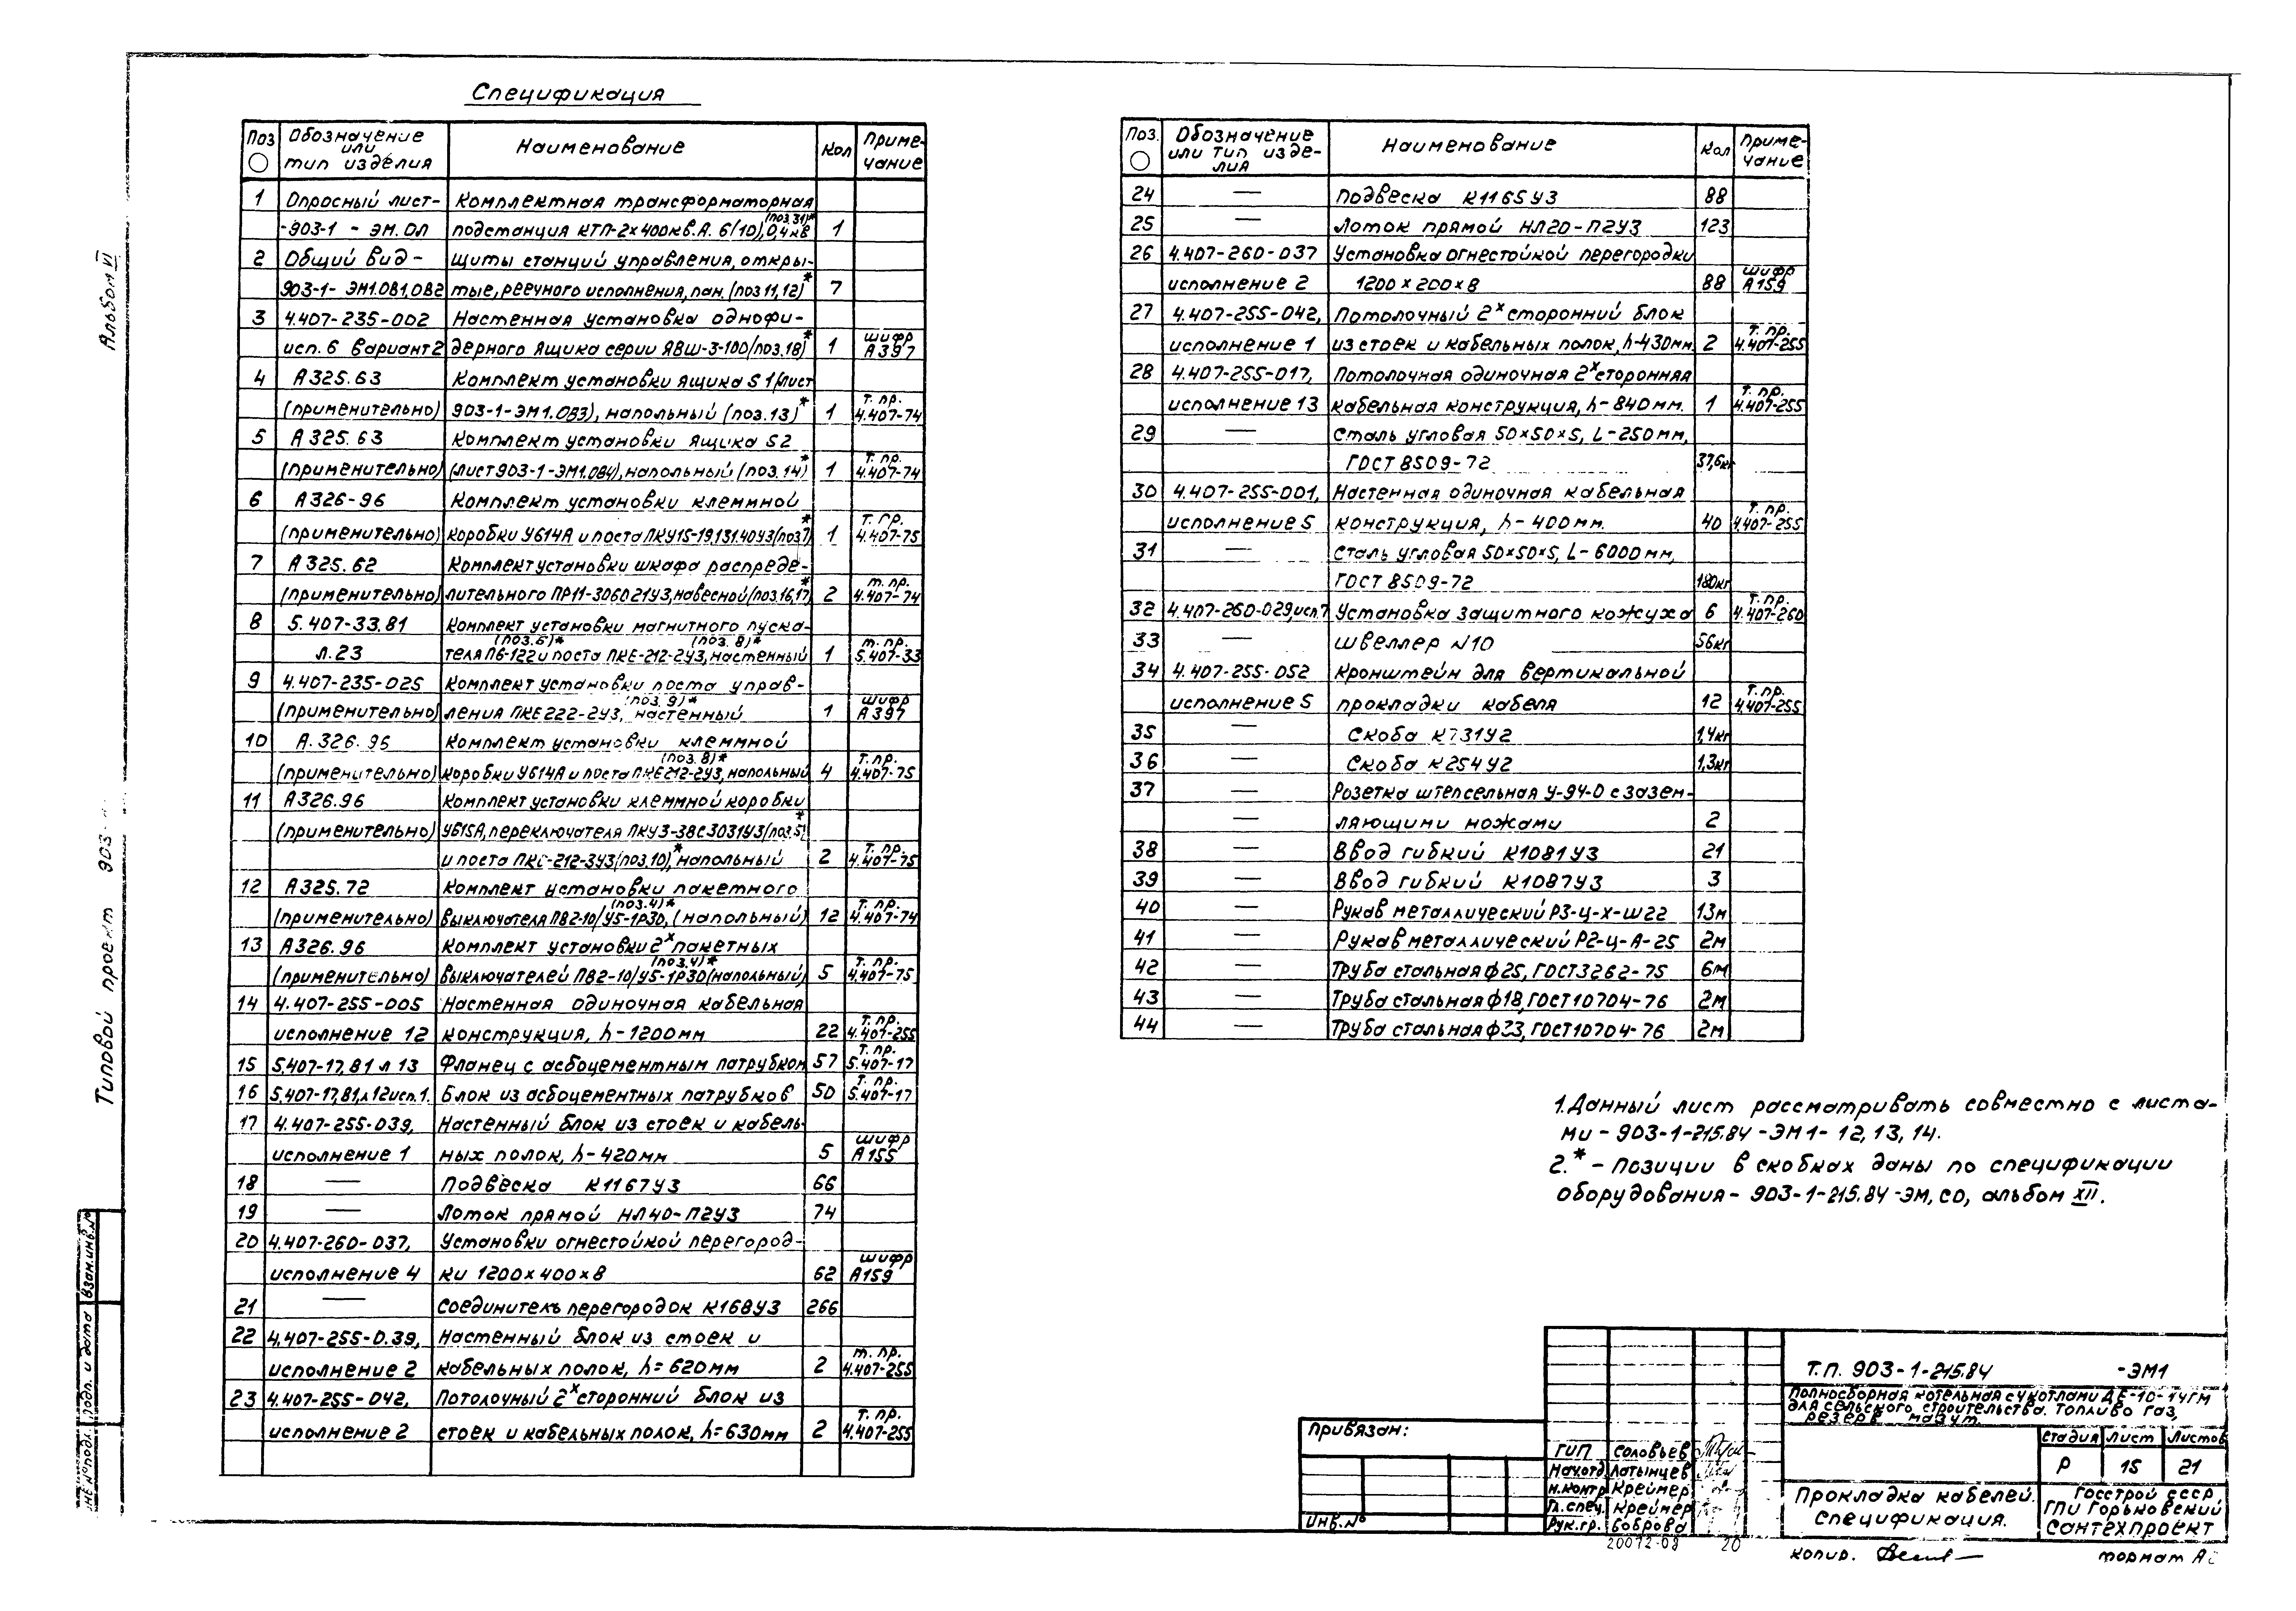 Альбом VI
Типовой проект 903-
Взам.инв.№
Подп. и дата
Спецификация
Поз Обозначение или тип изделия Наименование Кол Примечание
1 Опросный лист- Комплектная трансформаторная
-903-1 - ЭМ.ОЛ подстанция КТП-2×400кв.А. 6(10),0,4кв (поз.31)* 1
2 Общий вид - Щиты станций управления, откры-
903-1-ЭМ1.ОВ1,ОВ2 тые, реечного исполнения, пан. (поз 11,12)* 7
3 4.407-235-002 Настенная установка однофи-
исп. 6 вариант 2 дерного ящика серии ЯВШ-3-100(поз.18)* 1 шифр А397
4 А325.63 Комплект установки ящика S1(лист
(применительно) 903-1-ЭМ1.ОВ3), напольный (поз.13)* 1 т. пр. 4.407-74
5 А325.63 Комплект установки ящика S2
(применительно) (лист 903-1-ЭМ1.ОВ4), напольный (поз.14)* 1 т. пр. 4.407-74
6 А326-96 Комплект установки клеммной
(применительно) коробки У614А и поста ПКУ15-19.131.40У3(поз7)* 1 т. пр. 4.407-75
7 А325.62 Комплект установки шкафа распреде-
(применительно) лительного ПР11-3060 21У3, навесной(поз.16,17)* 2 т. пр. 4.407-74
8 5.407-33.81 Комплект установки магнитного пуска-
л.23 теля П6-122 (поз.6)* и поста ПКЕ-212-2У3 (поз.8)*, настенный 1 т. пр. 5.407-33
9 4.407-235-025 Комплект установки поста управ-
(применительно) ления ПКЕ222-2У3 (поз.9)*, настенный 1 шифр А397
10 А.326.96 Комплект установки клеммной
(применительно) коробки У614А и поста ПКЕ212-2У3 (поз.8)*, напольный 4 т. пр. 4.407-75
11 А326.96 Комплект установки клеммной коробки
(применительно) У615А, переключателя ПКУ3-38С3031У3(поз.5)*
и поста ПКЕ-212-3У3(поз.10)*, напольный 2 т. пр. 4.407-75
12 А325.72 Комплект установки пакетного
(применительно) выключателя ПВ2-10/У5-1Р30 (поз.4)*, (напольный) 12 т. пр. 4.407-74
13 А326.96 Комплект установки 2х пакетных
(применительно) выключателей ПВ2-10/У5-1Р30 (поз.4)* (напольный) 5 т. пр. 4.407-75
14 4.407-255-005 Настенная одиночная кабельная
исполнение 12 конструкция, h-1200мм 22 т. пр. 4.407-255
15 5.407-17,81 л 13 Фланец с асбоцементным патрубком 57 т. пр. 5.407-17
16 5.407-17,81,л 12 исп.1. Блок из асбоцементных патрубков 50 т. пр. 5.407-17
17 4.407-255-039, Настенный блок из стоек и кабель-
исполнение 1 ных полок, h-420мм 5 шифр А155
18 — Подвеска К1167У3 66
19 — Лоток прямой НЛ40-П2У3 74
20 4.407-260-037, Установки огнестойкой перегород-
исполнение 4 ки 1200×400×8 62 шифр А159
21 — Соединитель перегородок К168У3 266
22 4.407-255-0.39, Настенный блок из стоек и
исполнение 2 кабельных полок, h=620мм 2 т. пр. 4.407-255
23 4.407-255-042, Потолочный 2х сторонний блок из
исполнение 2 стоек и кабельных полок, h=630мм 2 т. пр. 4.407-255
Поз. Обозначение или тип изделия Наименование Кол Примечание
24 — Подвеска К1165У3 88
25 — Лоток прямой НЛ20-П2У3 123
26 4.407-260-037 Установка огнестойкой перегородки
исполнение 2 1200×200×8 88 шифр А159
27 4.407-255-042, Потолочный 2х сторонний блок
исполнение 1 из стоек и кабельных полок, h-430мм. 2 т. пр. 4.407-255
28 4.407-255-017, Потолочная одиночная 2х сторонняя
исполнение 13 кабельная конструкция, h-840мм. 1 т. пр. 4.407-255
29 — Сталь угловая 50×50×5, L-250мм,
ГОСТ 8509-72 37,6кг
30 4.407-255-001, Настенная одиночная кабельная
исполнение 5 конструкция, h-400мм. 40 т. пр. 4.407-255
31 — Сталь угловая 50×50×5, L-6000мм,
ГОСТ 8509-72 180кг
32 4.407-260-029,исп.7 Установка защитного кожуха 6 т. пр. 4.407-260
33 — Швеллер N10 56кг
34 4.407-255-052 Кронштейн для вертикальной
исполнение 5 прокладки кабеля 12 т. пр. 4.407-255
35 — Скоба К731У2 1,4кг
36 — Скоба К254У2 1,3кг
37 Розетка штепсельная У-94-0 с зазем-
— ляющими ножами 2
38 — Ввод гибкий К1081У3 21
39 — Ввод гибкий К1087У3 3
40 — Рукав металлический Р3-Ц-Х-Ш22 13м
41 — Рукав металлический Р2-Ц-А-25 2м
42 — Труба стальная ф25, ГОСТ3262-75 6м
43 — Труба стальная ф18, ГОСТ10704-76 2м
44 — Труба стальная ф33, ГОСТ10704-76 2м
1. Данный лист рассматривать совместно с листа-
ми - 903-1-215.84 -ЭМ1- 12, 13, 14.
2.* - Позиции в скобках даны по спецификации
оборудования - 903-1-215.84 -ЭМ, СО, альбом XII.
Привязан:
Инв.№
ГИП Соловьев
Нач.отд Латынцев
Н.контр Креймер
Гл.спец. Креймер
Рук.гр. Боброва
Т.П. 903-1-215.84 -ЭМ1
Полносборная котельная с 4 котлами ДЕ-10-14ГМ
для сельского строительства. Топливо газ,
резерв мазут.
Стадия Лист Листов
Р 15 21
Прокладка кабелей.
Спецификация.
Госстрой СССР
ГПИ Горьковский
Сантехпроект
20072-08 20
Копир.
формат